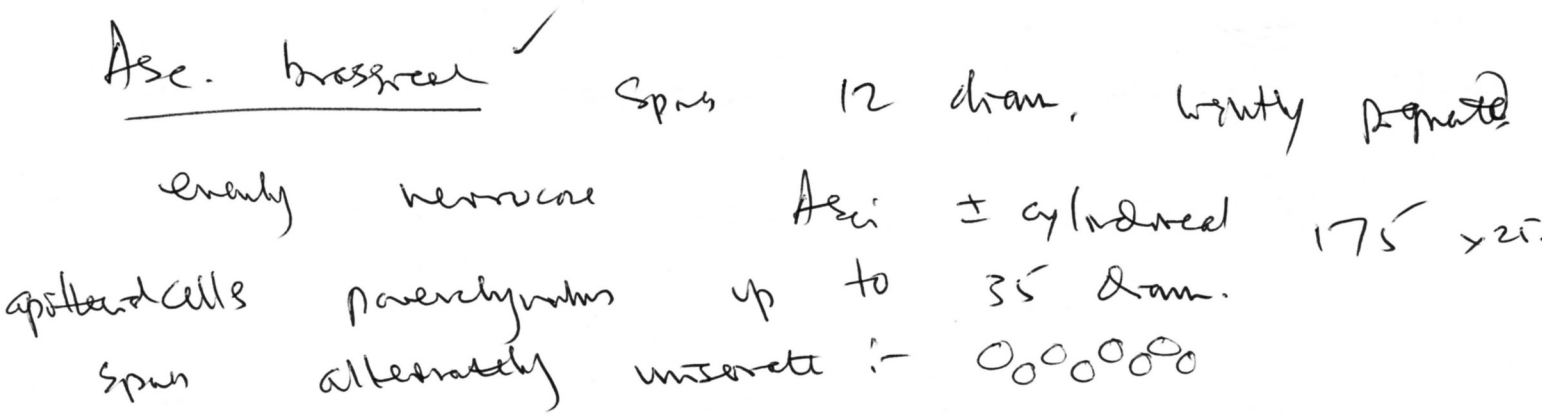 Asc. brassicae ✓ Spores 12 diam. lightly pigmented
evenly verrucose Asci ± cylindrical 175 x 25.
apothecial cells parenchymatous up to 35 diam.
Spores alternately uniseriate :-